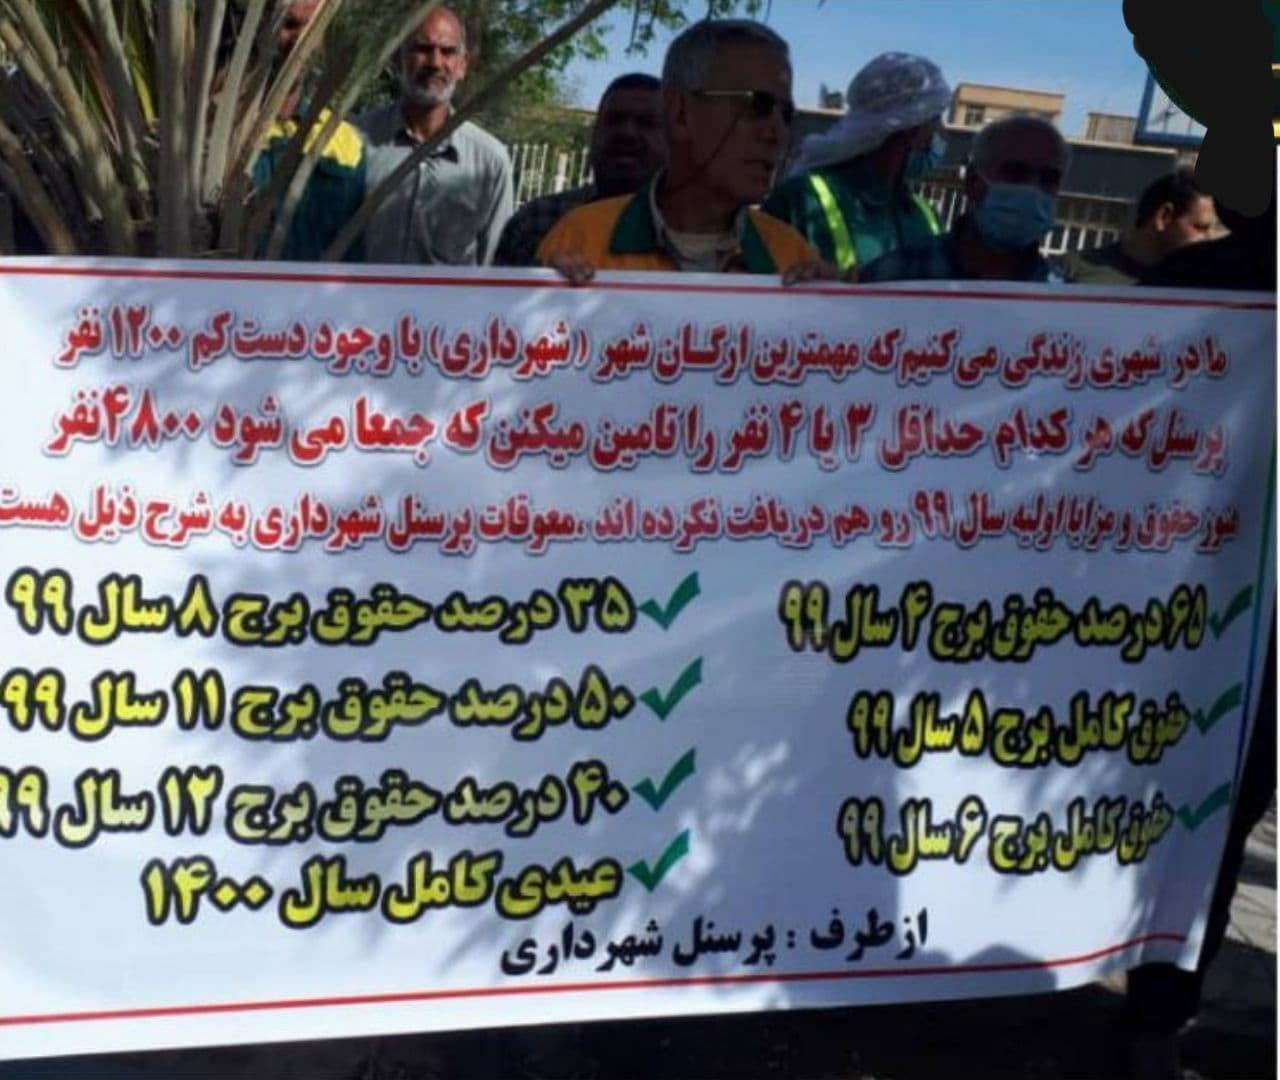 ما در شهری زندگی می‌کنیم که مهمترین ارگان شهر (شهرداری) با وجود دست‌کم ۱۲۰۰ نفر
پرسنل که هر کدام حداقل ۳ یا ۴ نفر را تامین میکنن که جمعا می شود ۴۸۰۰ نفر
هنوز حقوق و مزایا اولیه سال ۹۹ رو هم دریافت نکرده اند ،معوقات پرسنل شهرداری به شرح ذیل هست
۶۵ درصد حقوق برج ۴ سال ۹۹
حقوق کامل برج ۵ سال ۹۹
حقوق کامل برج ۶ سال ۹۹
۳۵ درصد حقوق برج ۸ سال ۹۹
۵۰ درصد حقوق برج ۱۱ سال ۹۹
۴۰ درصد حقوق برج ۱۲ سال ۹۹
عیدی کامل سال ۱۴۰۰
از طرف : پرسنل شهرداری